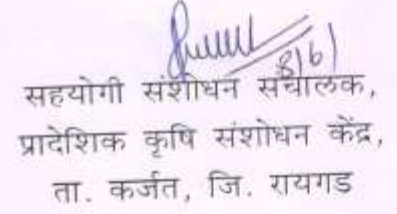 8/6/
सहयोगी संशोधन संचालक,
प्रादेशिक कृषि संशोधन केंद्र,
ता. कर्जत, जि. रायगड